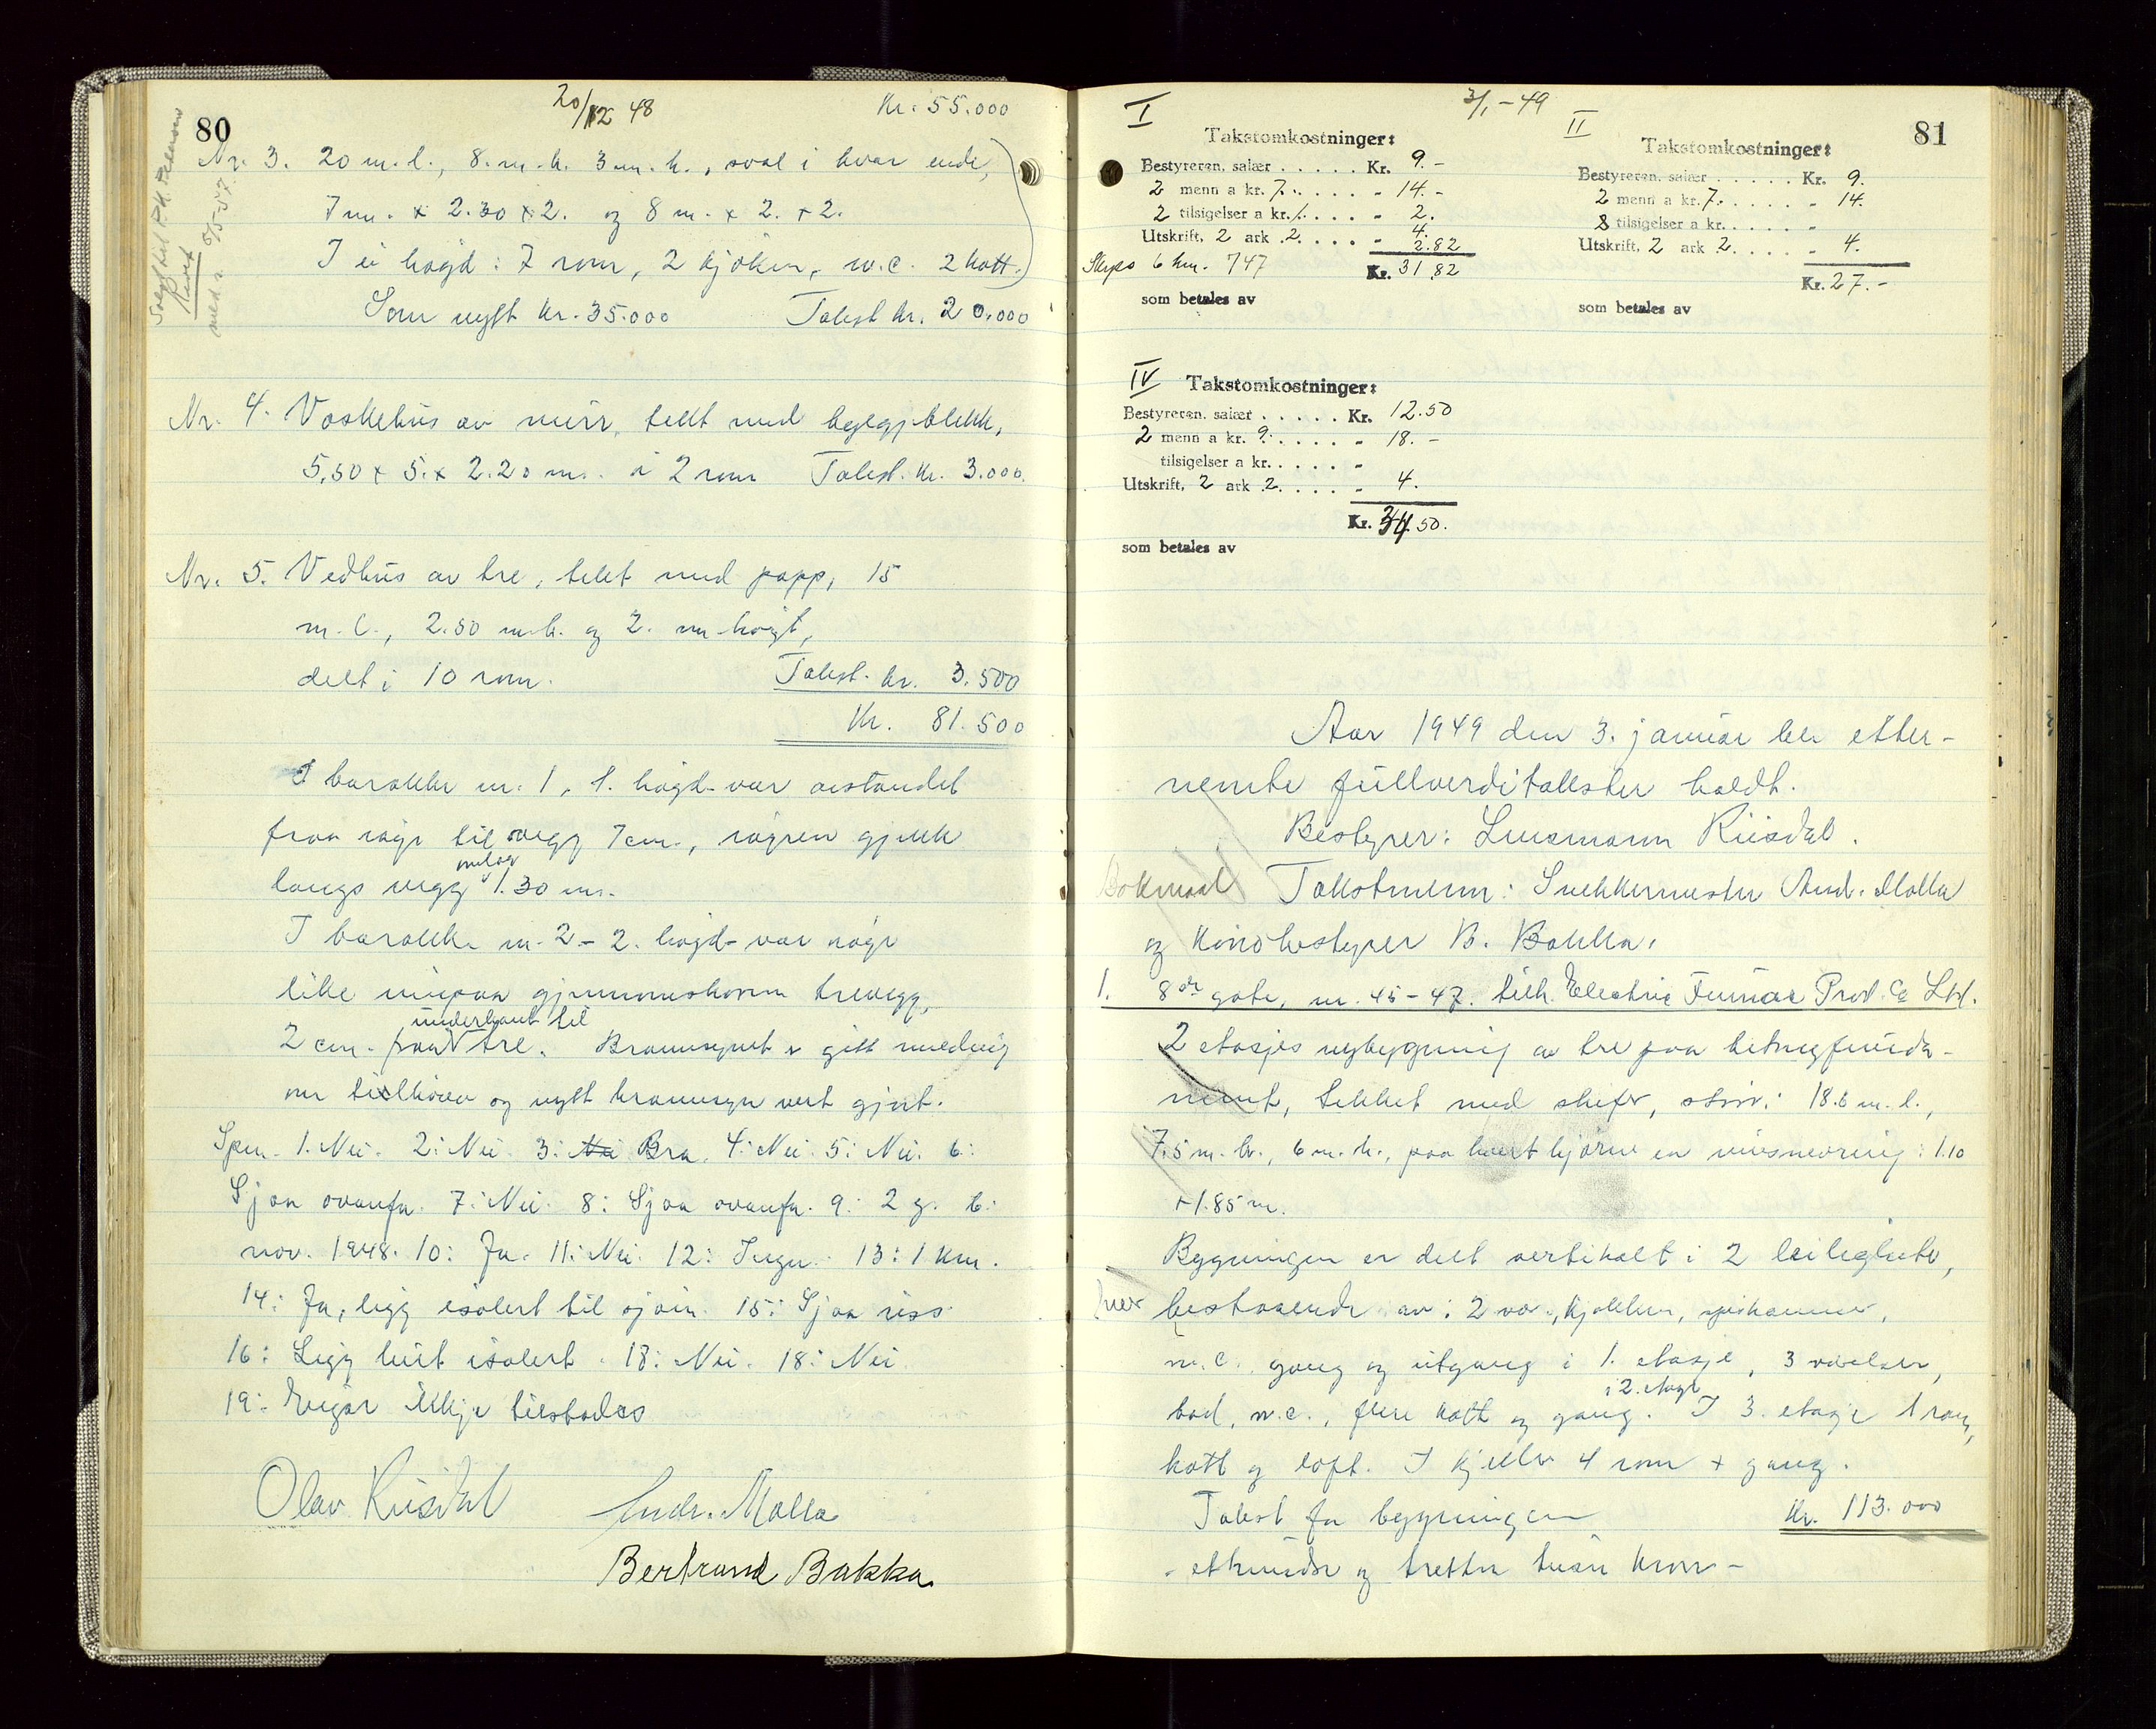 80
20/12 48
Kr. 55.000
Nr. 3. 20 m.l., 8 m.b. 3 m.h., sval i hvar ende,
7 m. x 2.30 x 2. og 8 m. x 2. x 2.
I ei høgd: 7 rom, 2 kjøken, w.c. 2 kott.
Som nytt kr. 35.000 Takst kr. 20.000
Nr. 4. Vaskehus av mur, tekt med bylgjeblekk,
5,50 x 5. x 2.20 m. i 2 rom Takst. kr. 3.000.
Nr. 5. Vedhus av tre, tekt med papp, 15
m.l., 2.50 m.b. og 2. m høgt,
delt i 10 rom. Takst. kr. 3.500
Kr. 81.500
I barakke nr. 1, 1. høgd var avstandet
fraa røyr til vegg 7 cm., røyren gjekk
langs vegg 1.30 m.
I barakke nr. 2 - 2. høgd var røyr
like innpaa gjennomskoren trevegg,
underkant til
2 cm. fraa tre. Brannsynet er gitt melding
om tilhøva og nytt brannsyn vert gjort.
Spm. 1. Nei. 2: Nei. 3: Bra. 4: Nei. 5: Nei. 6:
Sjaa ovanfor. 7: Nei. 8: Sjaa ovanfor. 9: 2 g. 6:
nov. 1948. 10: Ja. 11: Nei. 12: Ingen. 13: 1 km.
14: Ja, ligg isolert til sjøin. 15: Sjaa riss
16: Ligg heilt isolert. 18: Nei. 18: Nei
19: Eigar ikkje tilstades
Olav Riisdal Andr. Molla
Bertrand Bakka
81
3/1 - 49
I
Takstomkostninger:
Bestyreren, salær ..... Kr. 9.-
2 menn a kr. 7. .... " 14.-
2 tilsigelser a kr. 1. .... " 2.
Utskrift, 2 ark 2. .... " 4.
2.82
Skyss 6 km. 747 Kr. 31.82
som betales av
II
Takstomkostninger:
Bestyreren, salær ..... Kr. 9.
2 menn a kr. 7. ..... " 14.
tilsigelser a kr. ..... "
Utskrift, 2 ark 2. .... " 4.
Kr. 27.-
som betales av
IV Takstomkostninger:
Bestyreren, salær ..... Kr. 12.50
2 menn a kr. 9. .... " 18.-
tilsigelser a kr. ..... "
Utskrift, 2 ark 2. .... " 4.
Kr. 34.50.
som betales av
Aar 1949 den 3. januar ble etter-
nemte fullverditakster holdt.
Bestyrer: Lensmann Riisdal.
Bokmaal Takstmenn: Snekkermester Andr. Molla
og kinobestyrer B. Bakka.
1. 8de gate, nr. 45-47. tilh. Electric Furnace Prod. Co Ltd.
2 etasjes nybygning av tre paa betongfunda-
ment, tekket med skifer, størr.: 18.6 m.l.,
7.5 m.br., 6 m.h., paa hvert hjørne en innsnevring: 1.10
x 1.85 m.
Bygningen er delt vertikalt i 2 leiligheter,
hver bestaaende av: 2 vær., kjøkken, spiskammer,
w.c. gang og utgang i 1. etasje, 3 værelser,
i 2. etage
bad, w.c., flere kott og gang. I 3. etasje 1 rom,
kott og loft. I kjeller 4 rom + gang.
Takst for bygningen Kr. 113.000
- et hundre og tretten tusen kroner -